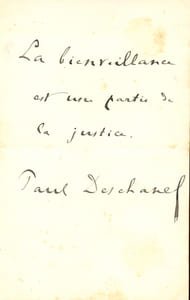 La bienveillance
est une partie de
la justice.
Paul Deschanel